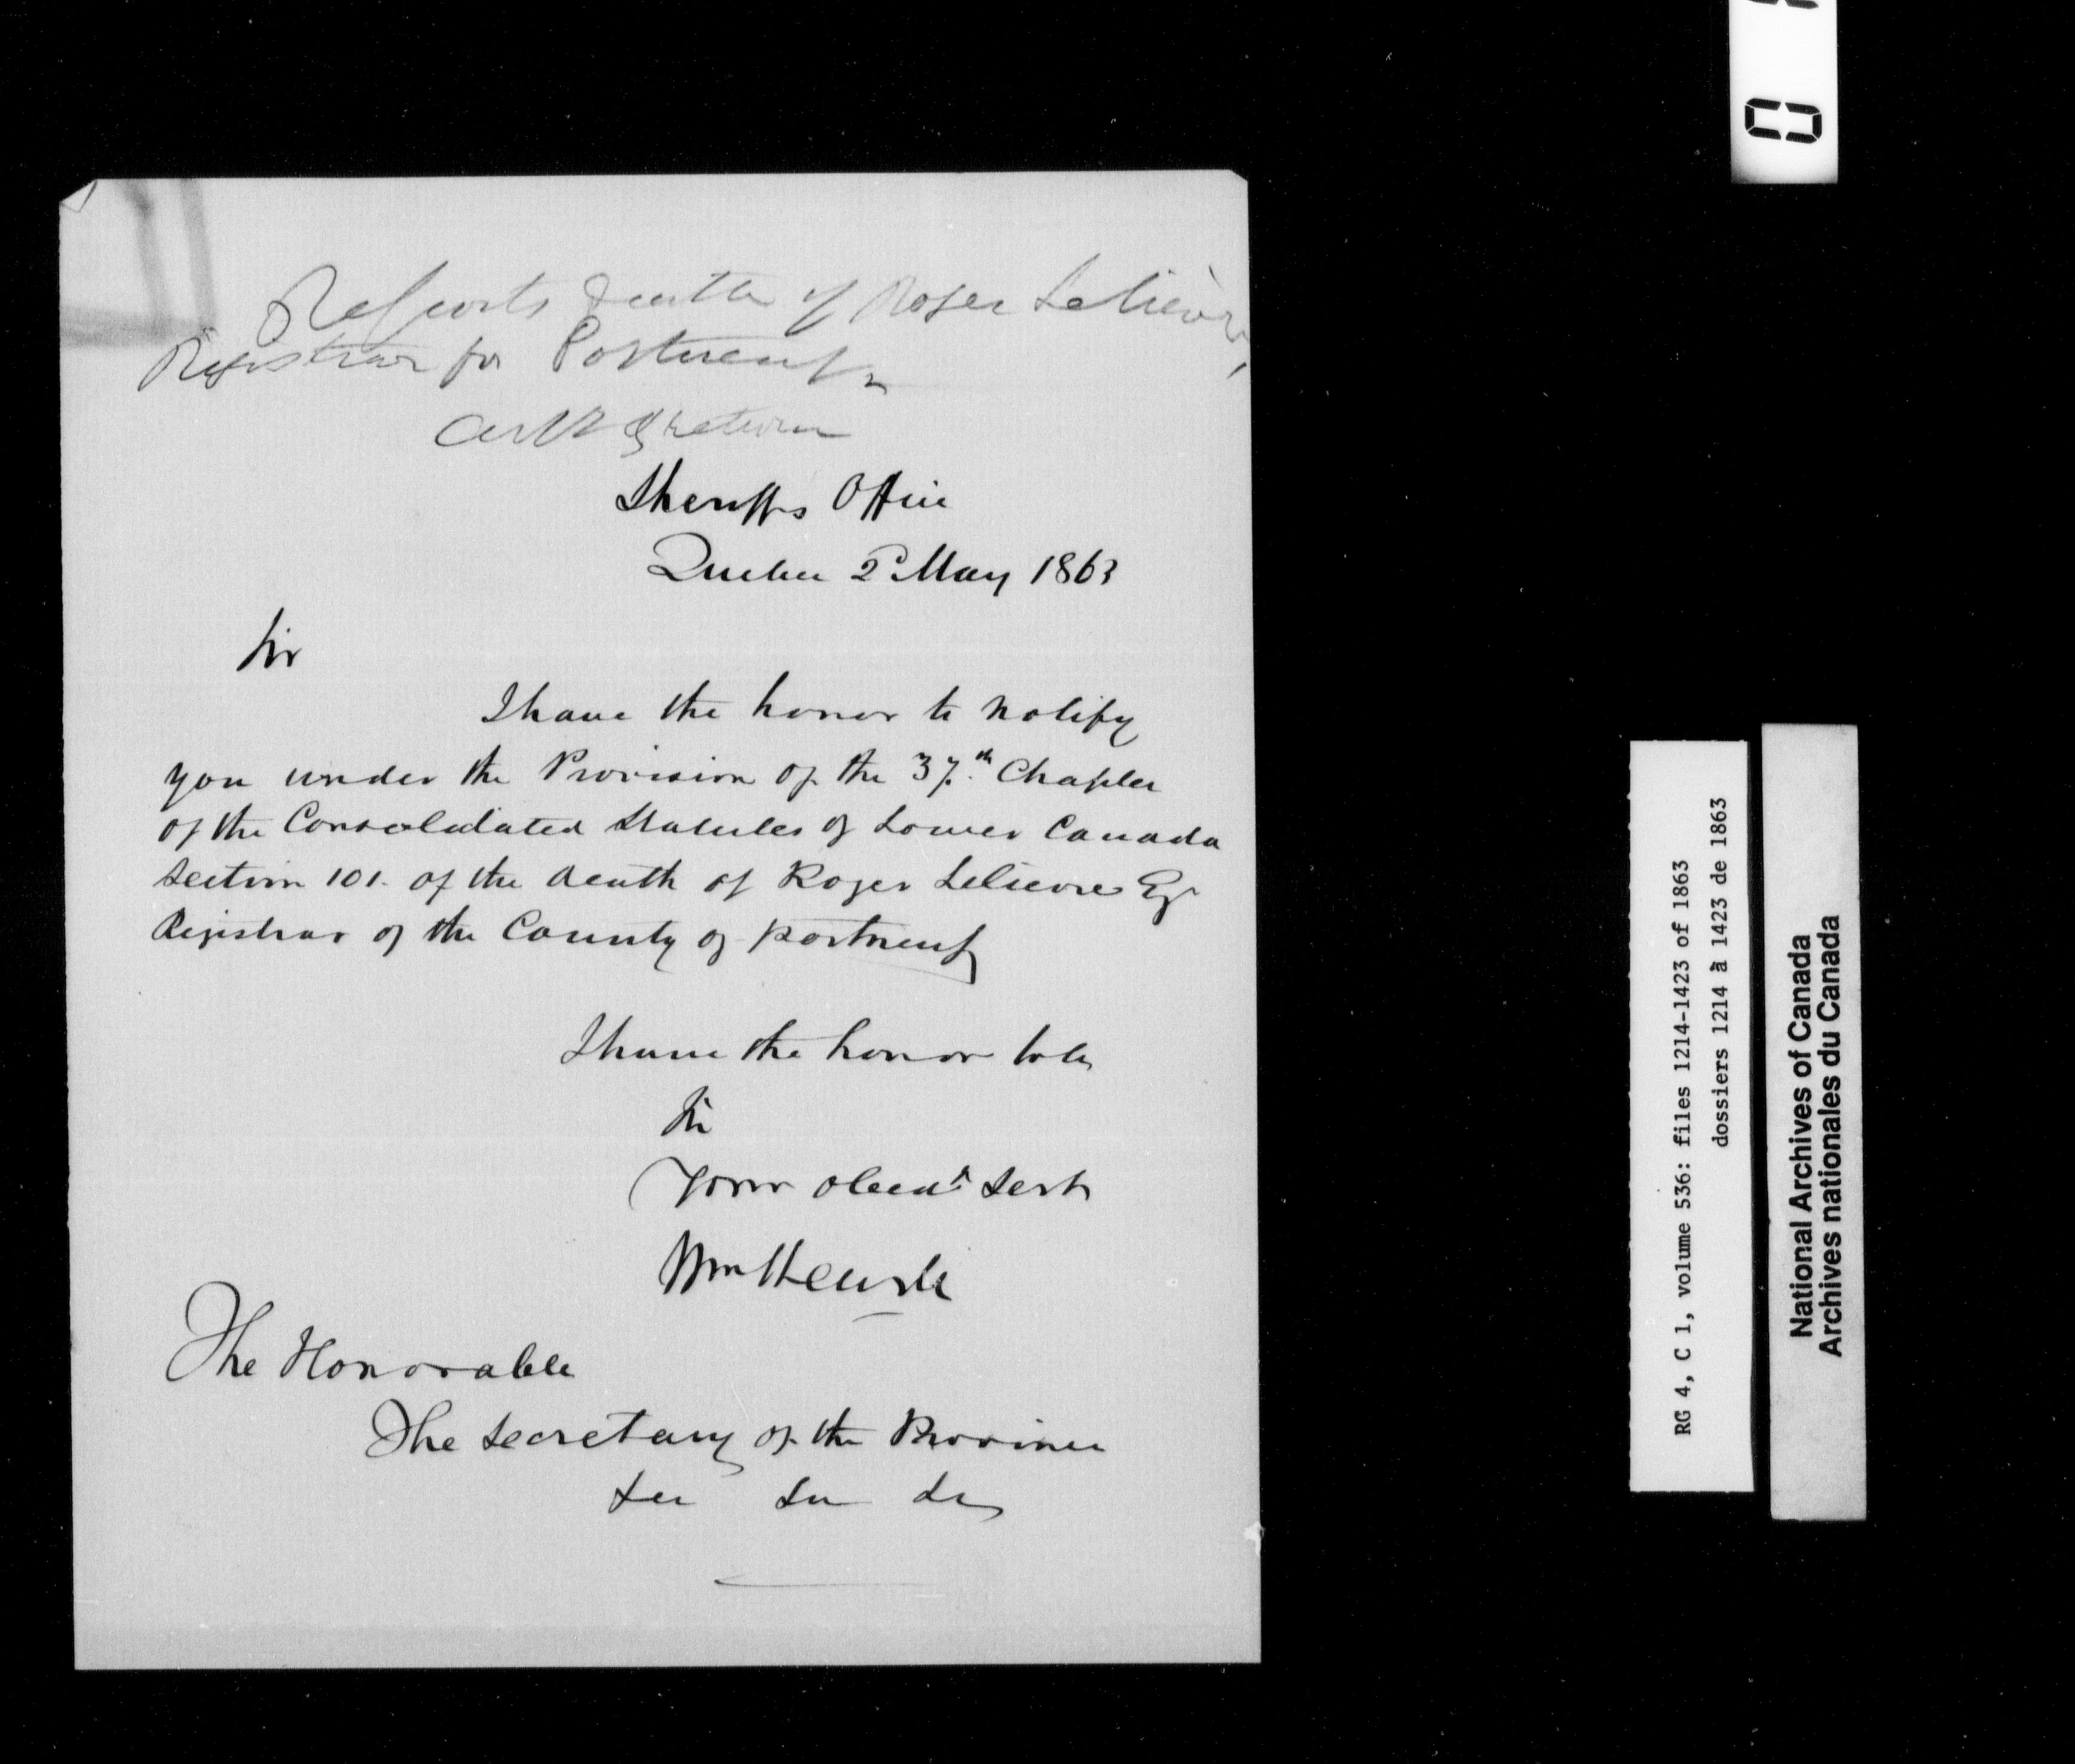 Reports death of Roger Lelièvre,
Registrar for Portneuf
Sheriffs Office
Quebec 2 May 1863
Sir
I have the honor to notify
you under the Provision of the 37.th Chapter
of the Consolidated Statutes of Lower Canada
Section 101. of the death of Roger Lelievre Esqr
Registrar of the County of portneuf
I have the honor to be
Sir
Your obedt Servt
The Honorable
The Secretary of the Province
RG 4, C 1, volume 536: files 1214-1423 of 1863
dossiers 1214 à 1423 de 1863
National Archives of Canada
Archives nationales du Canada
0